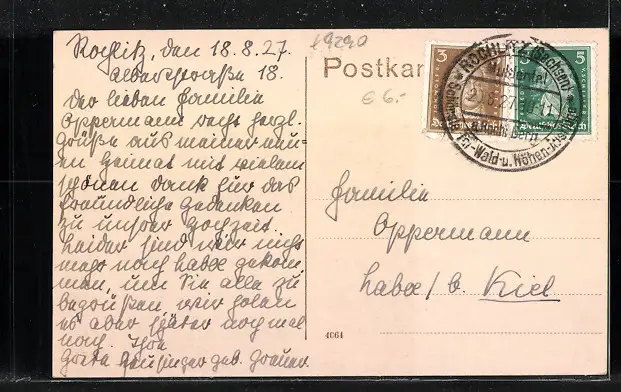 Rochlitz, den 18.8.27.
Albertstraße 18.
Der lieben Familie
Oppermann recht herzl.
Grüße aus meiner neu-
en Heimat mit vielem
schönen Dank für das
freundliche Gedenken
zu unsrer Hochzeit.
Leider sind wir nicht
mehr nach Laboe gekom
men, um Sie alle zu
begrüßen wir holen
es aber später noch mal
nach. Ihre
geb.
Postkar
€ 6.-
3
5
ROCHLITZ (Sachsen)
Muldental
Wald- u. Höhen-
Familie
Oppermann
Laboe / b. Kiel
4061